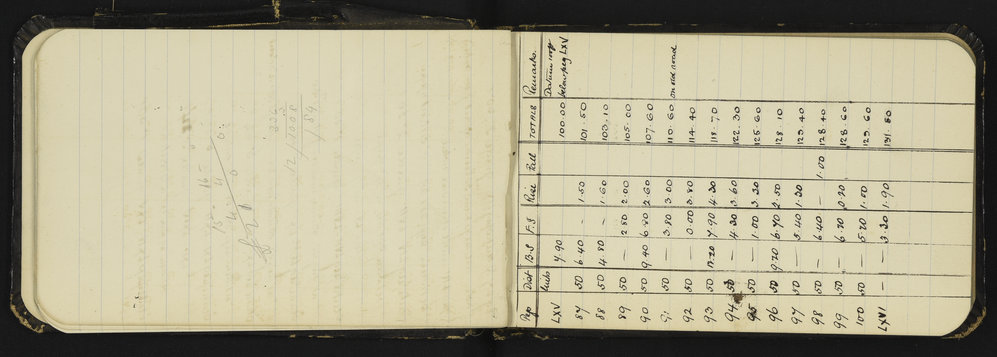 Peg Dist B.S F.S Rise Fall TOTALS Remarks
links Datum 100ft
LXV 7.90 100.00 below peg LXV
87 50 6.40 — 1.50 101.50
88 50 4.80 — 1.60 103.10
89 50 — 2.80 2.00 105.00
90 50 9.40 6.80 2.60 107.60
91 50 — 3.80 3.00 110.60 on old road
92 50 — 0.00 3.80 114.40
93 50 13.20 7.90 4.30 118.70
94 50 — 4.30 3.60 122.30
95 50 — 1.00 3.30 125.60
96 50 9.20 6.70 2.50 128.10
97 50 — 5.40 1.30 129.40
98 50 — 6.40 — 1.00 128.40
99 50 — 6.20 0.20 128.60
100 50 — 5.20 1.00 129.60
LXVI — — 3.30 1.90 131.50